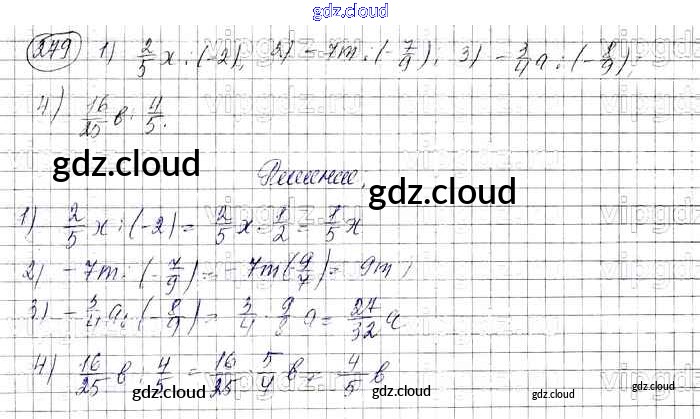 gdz.cloud
249 1) 2/5 x : (-2); 2) -7m : (-7/9); 3) -3/4 a : (-8/9);
4) 16/25 в : 4/5.
gdz.cloud
Решение:
gdz.cloud
1) 2/5 x : (-2) = -2/5 x · 1/2 = -1/5 x
2) -7m : (-7/9) = -7m (-9/7) = 9m;
3) -3/4 a : (-8/9) = 3/4 · 9/8 a = 27/32 a
4) 16/25 в : 4/5 = 16/25 · 5/4 в = 4/5 в
gdz.cloud gdz.cloud gdz.cloud gdz.cloud